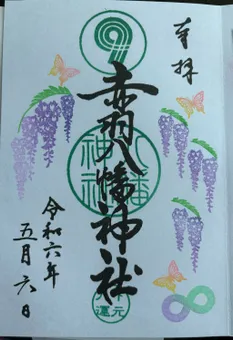 奉拝
赤羽八幡神社
八幡神社
令和六年
五月六日